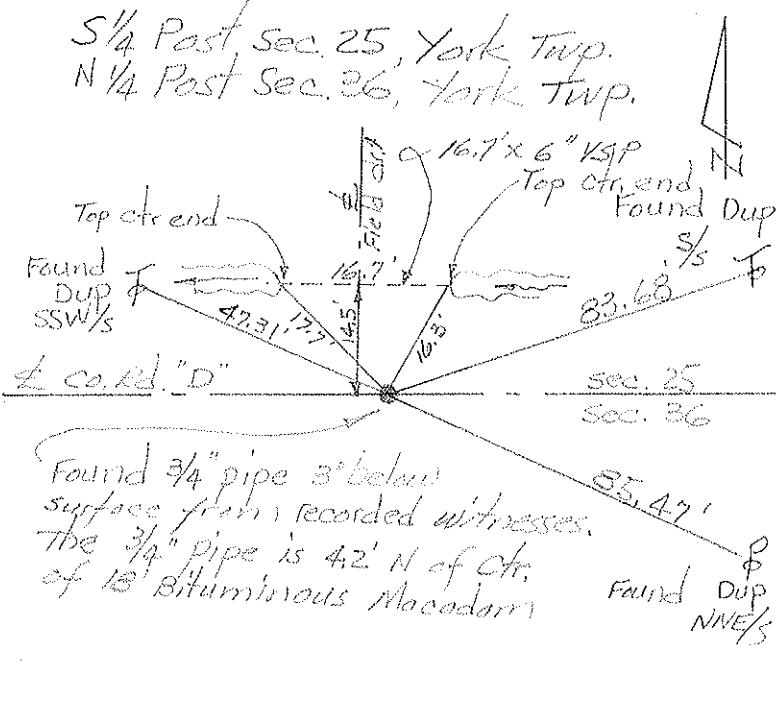 S 1/4 Post Sec. 25, York Twp.
N 1/4 Post Sec. 36, York Twp.
N
16.7' x 6" VSP
Top ctr. end
Found Dup
S/s
℄ Field dr.
Top ctr end
16.7'
Found
Dup
SSW/s
47.31'
17.7'
14.5'
16.3'
83.68'
℄ Co. Rd. "D"
sec. 25
Sec. 36
85.47'
Found 3/4" pipe 3" below
surface from recorded witnesses.
The 3/4" pipe is 4.2' N of Ctr.
of 18' Bituminous Macadam
Found Dup
NNE/s